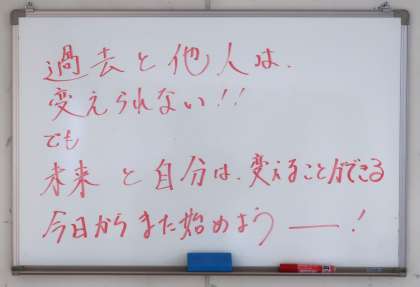 過去と他人は、
変えられない!!
でも
未来と自分は、変えることができる
今日からまた始めよう――!